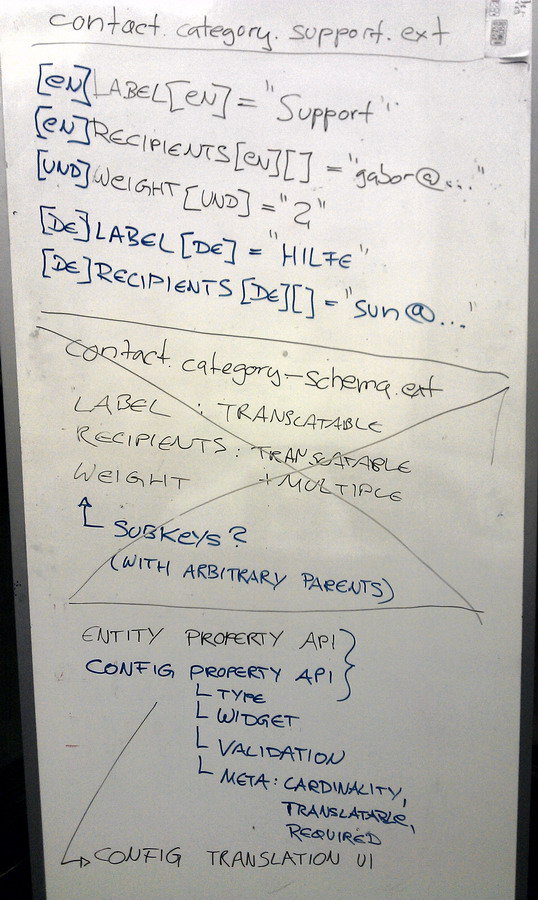 contact.category.support.ext
[EN]LABEL[EN] = "Support"
[EN]RECIPIENTS[EN][] = "gabor@..."
[UND]WEIGHT[UND] = "2"
[DE]LABEL[DE] = "HILFE"
[DE]RECIPIENTS[DE][] = "sun@..."
contact.category-schema.ext
LABEL : TRANSLATABLE
RECIPIENTS: TRANSLATABLE
WEIGHT + MULTIPLE
SUBKEYS?
(WITH ARBITRARY PARENTS)
ENTITY PROPERTY API
CONFIG PROPERTY API
TYPE
WIDGET
VALIDATION
META: CARDINALITY,
TRANSLATABLE,
REQUIRED
CONFIG TRANSLATION UI